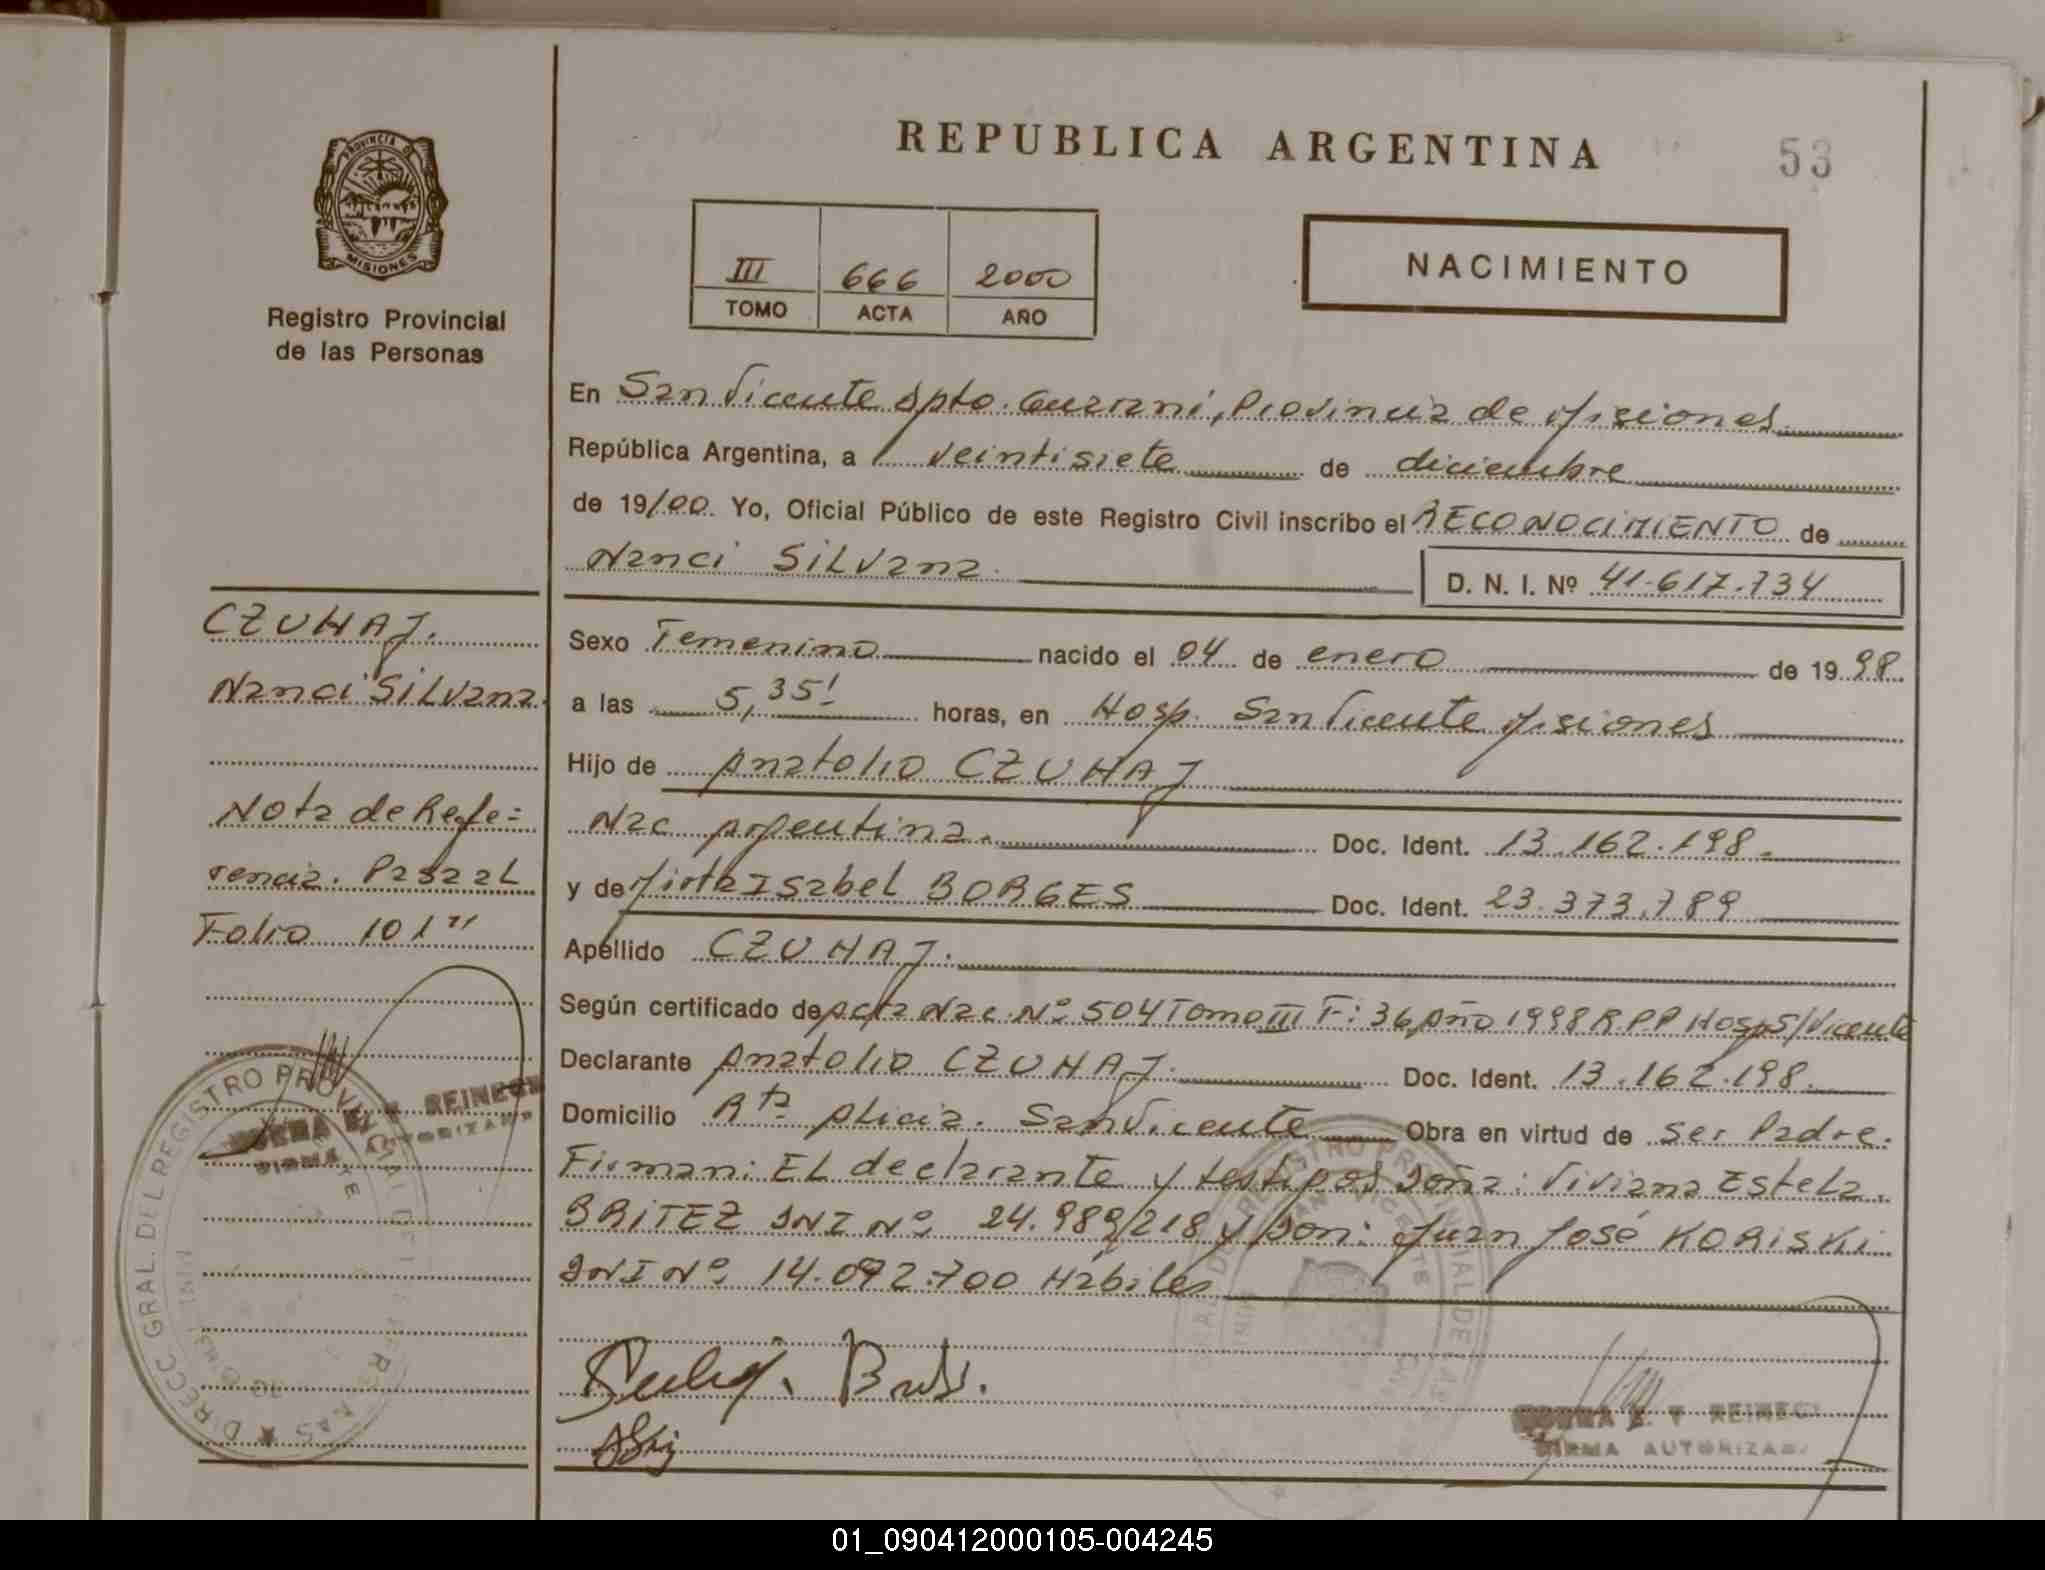 REPUBLICA ARGENTINA
53
PROVINCIA DE
MISIONES
Registro Provincial
de las Personas
III 666 2000
TOMO ACTA AÑO
NACIMIENTO
En San Vicente Dpto. Guarani, Provincia de Misiones
República Argentina, a veintisiete de diciembre
de 19/00. Yo, Oficial Público de este Registro Civil inscribo el RECONOCIMIENTO de
Nanci SILVana.
D. N. I. Nº 41.617.734
Sexo Femenino nacido el 04 de enero de 1998.
a las 5,35' horas, en Hosp. San Vicente Misiones
Hijo de Anatolio CZUHAJ
Nac Argentina. Doc. Ident. 13.162.198.
y de Mirta Isabel BORGES Doc. Ident. 23.373.789
Apellido CZUHAJ.
Según certificado de Acta Nac. Nº 504 Tomo III F: 36, Año 1998 R.P.P Hosp S/Vicente
Declarante Anatolio CZUHAJ. Doc. Ident. 13.162.198.
Domicilio Rta Alicia. San Vicente Obra en virtud de ser Padre.
Firman: EL declarante y testigos Doña: Viviana Estela
BRITEZ DNI Nº 24.989/218 y Don: Juan José KORISKI
DNI Nº 14.092.700 Hábiles
CZUHAJ.
Nanci SILVana.
Nota de Refe=
rencia. Pasa aL
Folio 101"
DIRECC GRAL. DEL REGISTRO PROVINCIAL DE LAS PERSONAS
REINECK
FIRMA AUTORIZADA
REGISTRO PROVINCIAL DE LAS
SAN VICENTE
REINECK
FIRMA AUTORIZADA
01_090412000105-004245